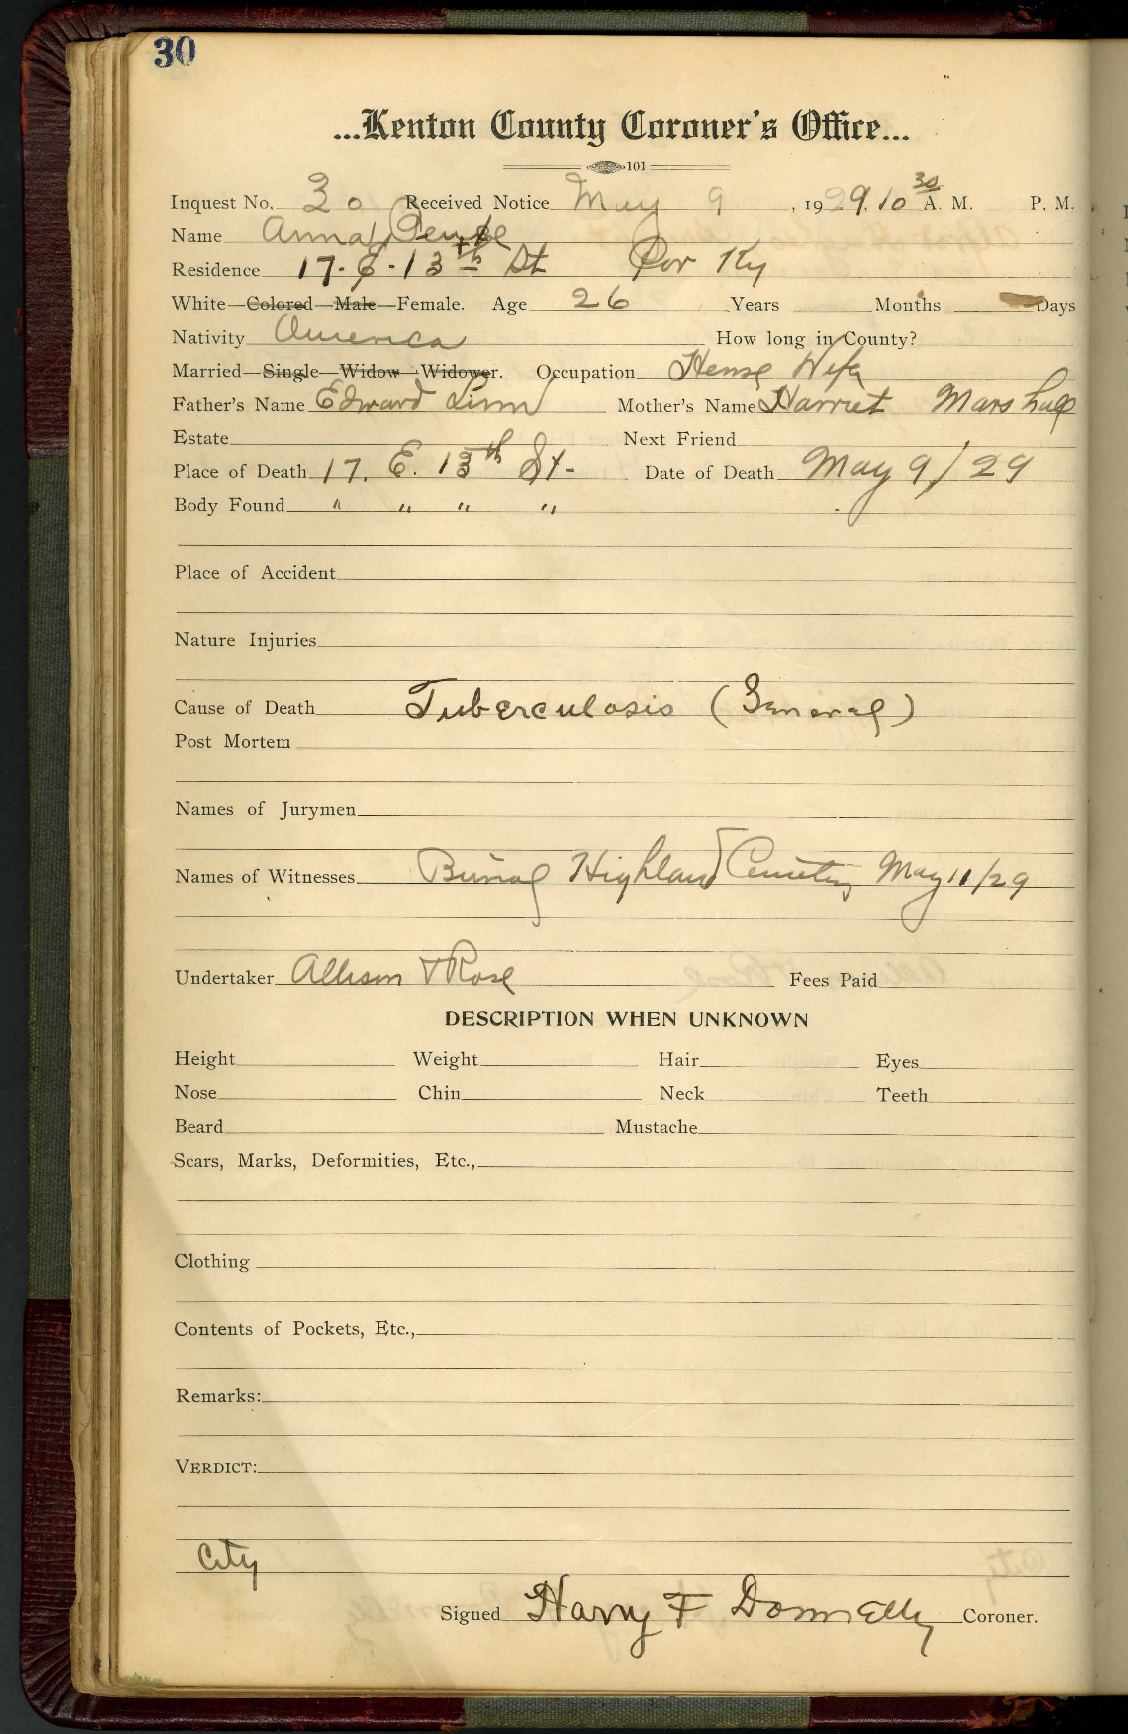 30
...Kenton County Coroner's Office...
101
Inquest No. 30 Received Notice May 9, 1929. 10 30 A. M. P. M.
Name Anna
Residence 17. E. 13th St Cov Ky
White—Colored—Male—Female. Age 26 Years Months Days
Nativity America How long in County?
Married—Single—Widow—Widower. Occupation House Wife
Father's Name Edward Linn Mother's Name Harriet Marshall
Estate Next Friend
Place of Death 17. E. 13th St. Date of Death May 9/29
Body Found " " " "
Place of Accident
Nature Injuries
Cause of Death Tuberculosis (General)
Post Mortem
Names of Jurymen
Names of Witnesses Burial Highland Cemetery May 11/29
Undertaker Allison & Rose Fees Paid
DESCRIPTION WHEN UNKNOWN
Height Weight Hair Eyes
Nose Chin Neck Teeth
Beard Mustache
Scars, Marks, Deformities, Etc.,
Clothing
Contents of Pockets, Etc.,
Remarks:
VERDICT:
City
Signed Harry F Donnelly Coroner.